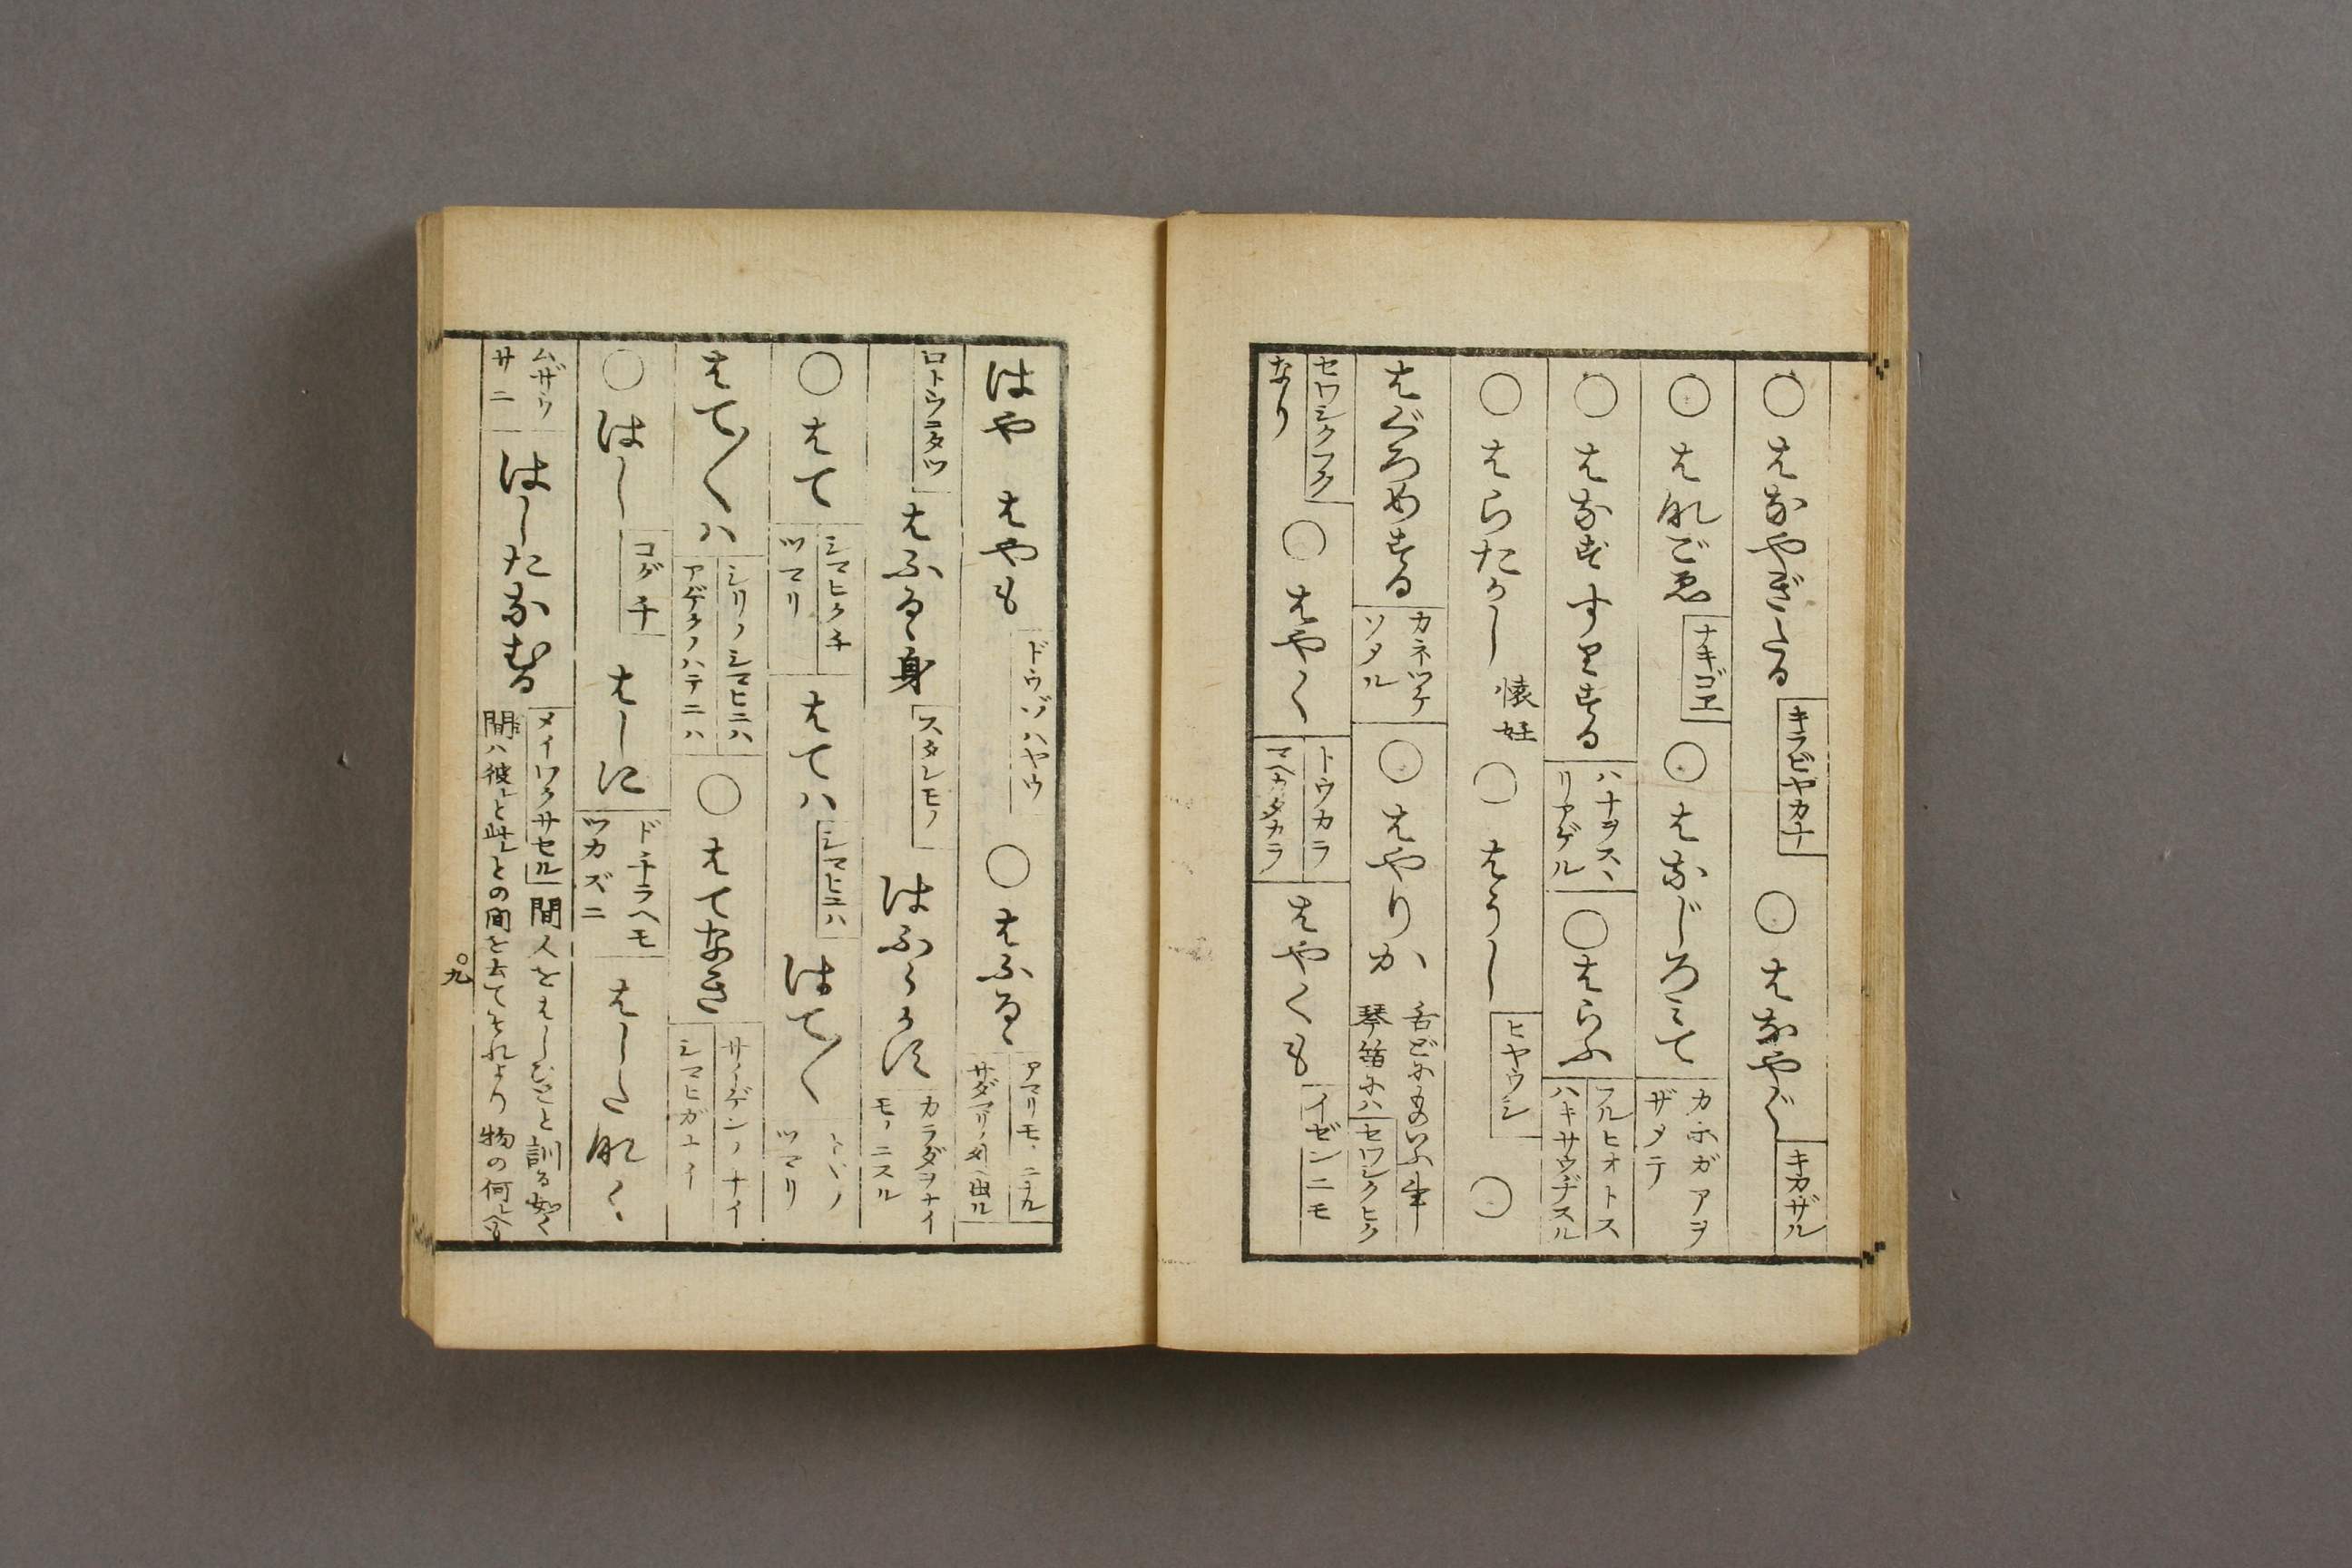 ○はなやぎたる キラビヤカナ ○はなやぐ キカザル
○はねごゑ ナキゴヱ ○はなじろみて カホガアヲザメテ
○はなすゝりする ハナヲスヽリアゲル ○はらふ フルヒオトス ハキサウヂスル
○はらたかし 懐妊 ○はうし ヒヤウシ ○
はぐろめする カネツケソメル ○はやりか 舌どにものいふ事 琴笛にハ セワシクヒク
セワシクフク なり ○はやく トウカラ マヘカタカラ はやくも イゼンニモ
はや はやも ドウゾハヤウ ○はふるゝ アマリモノニナル
ロトウニタツ はふるゝ身 スタレモノ はふらかす カラダヲナイモノニスル
○はて シマヒクチ ツマリ はてハ シマヒニハ はて〳〵 トヾノツマリ
はて〳〵ハ シリノシマヒニハ アゲクノハテニハ ○はてなき サイゲンノナイ シマヒガナイ
○はし コグチ はしに ドチラヘモツカズニ はしたねく
ムザウサニ はしたなむる メイワクサセル 間人をはしひとと訓る如く
間ハ彼レと此レとの間を去てそれより物の何レへも
九